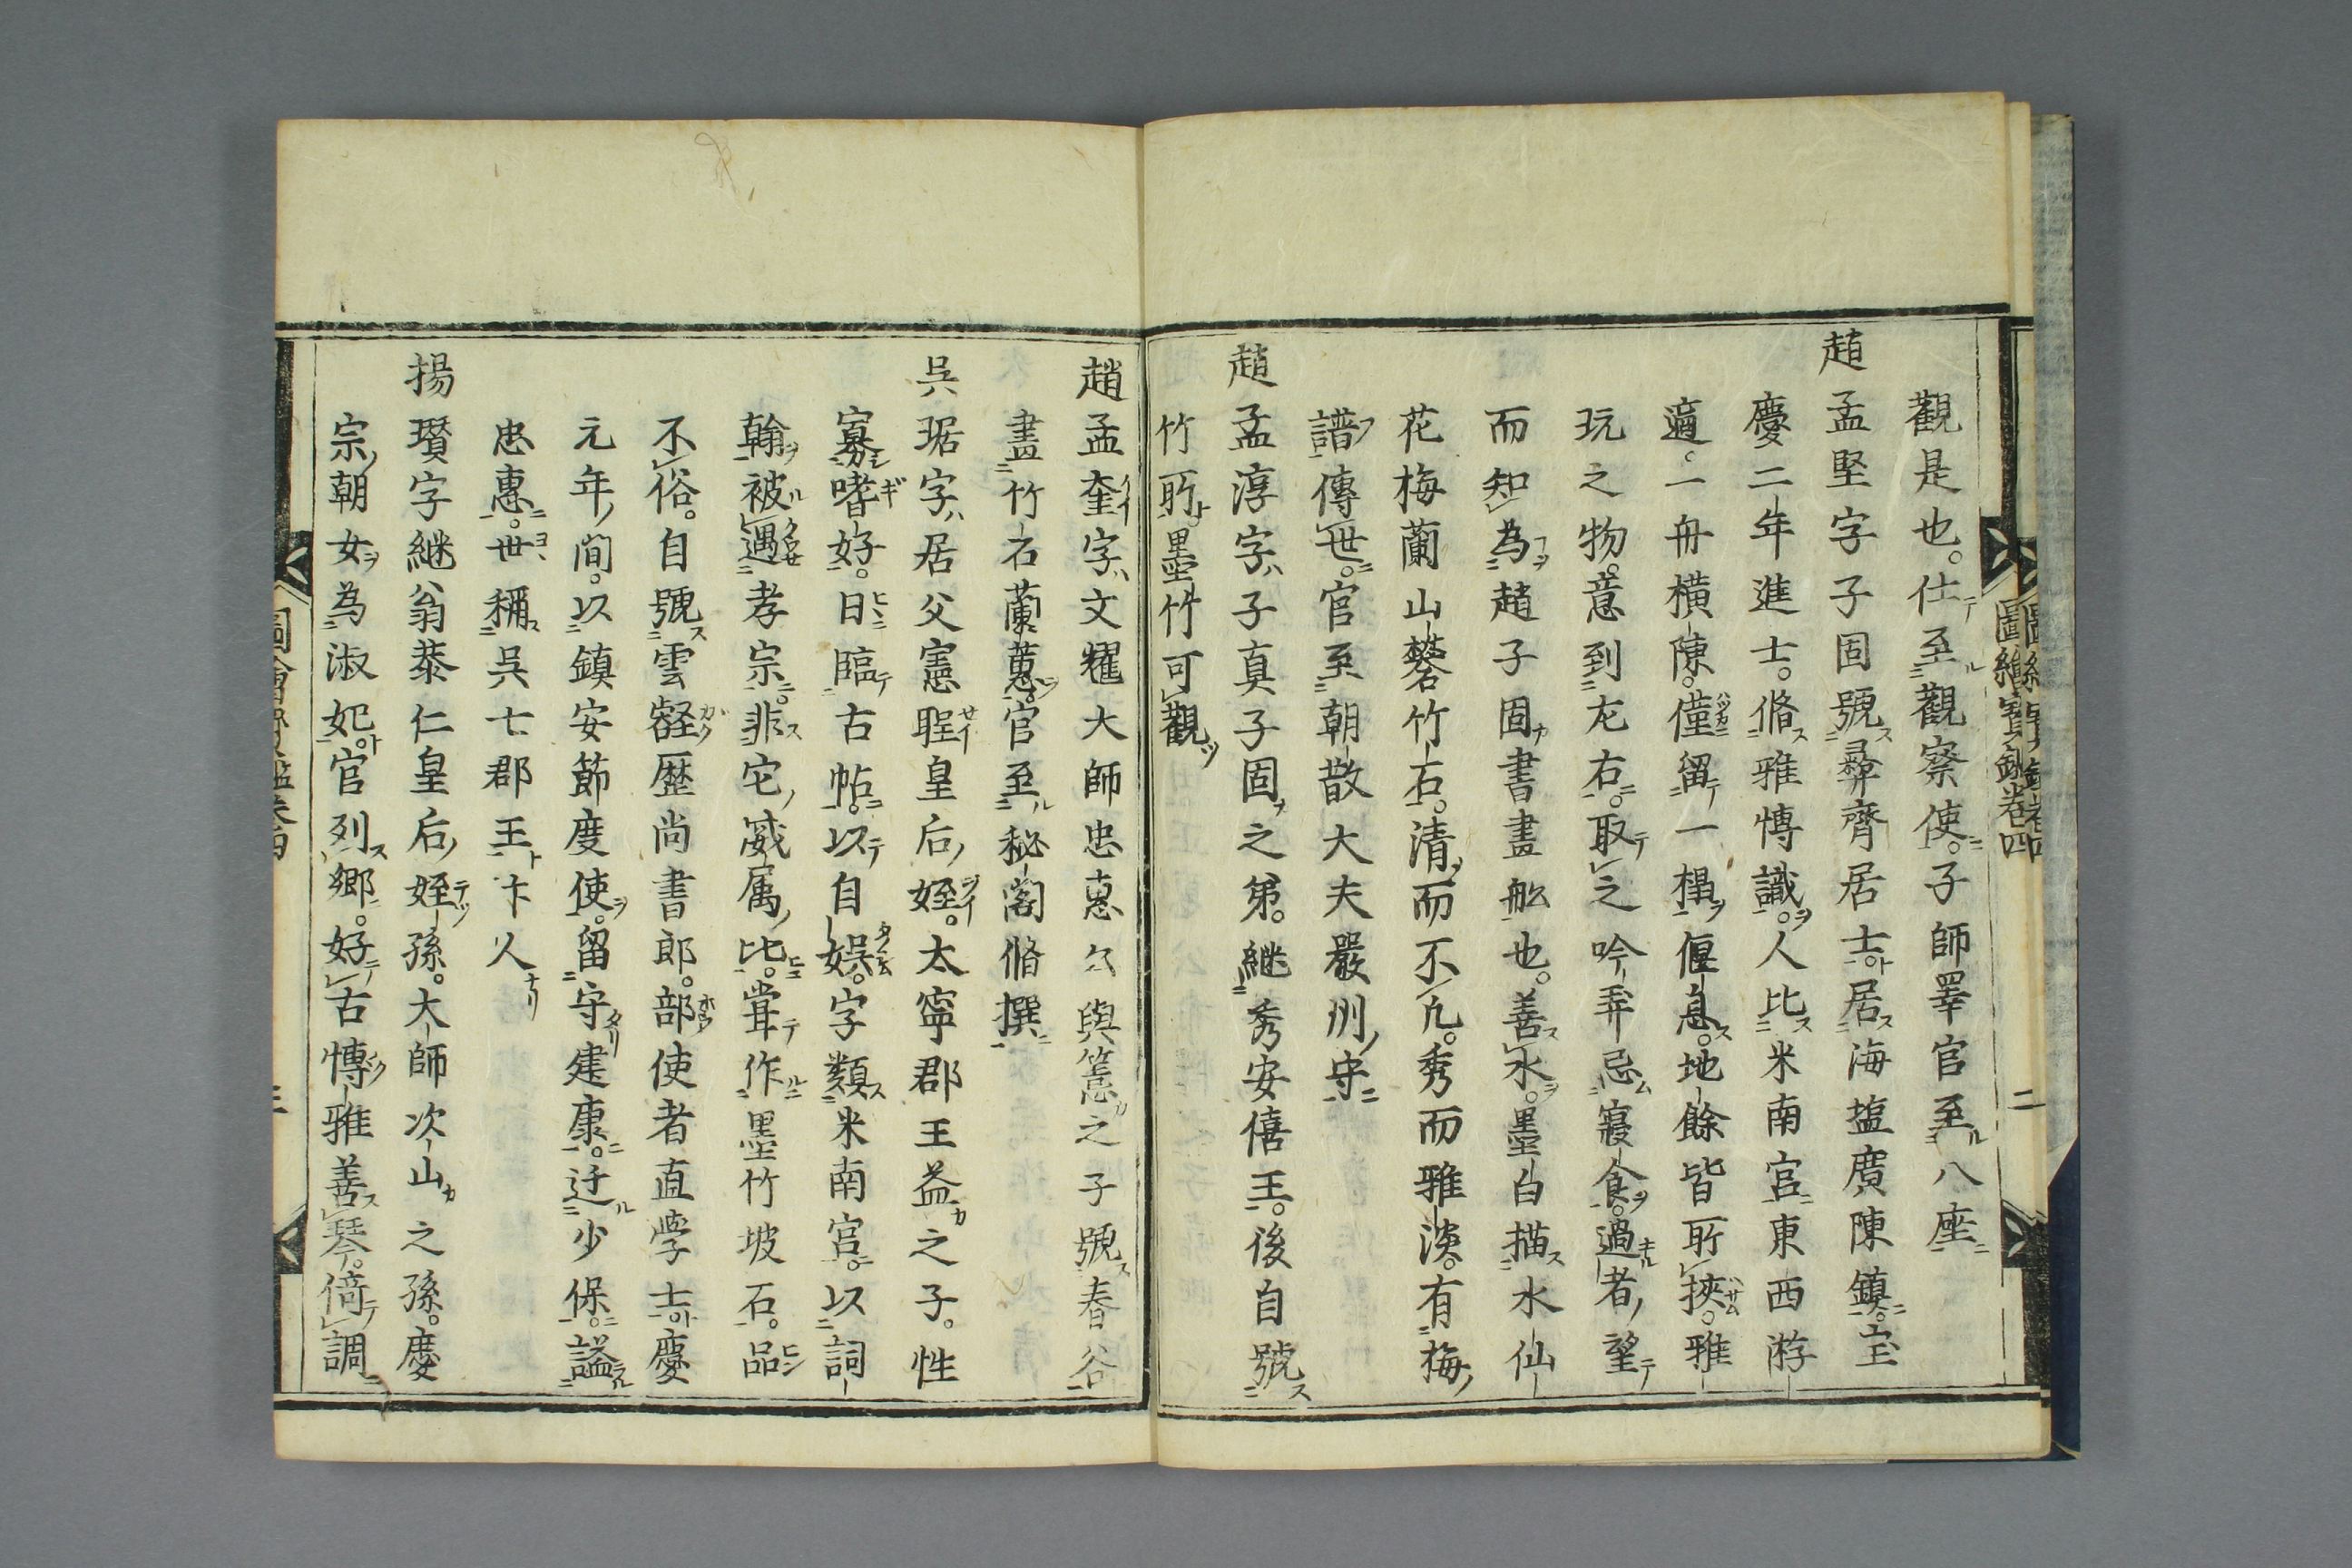 觀是也。仕至觀察使。子師睪官至八座
趙孟堅字子固號彛齊居士。居海塩廣陳鎮。宝
慶二年進士。脩雅博識。人比米南宮東西游
適。一舟横陳。僅留一榻偃息。地餘皆所挾。雅
玩之物。意到左右。取之吟弄忘寢食。過者望
而知為趙子固書畫舩也。善水墨白描水仙
花梅蘭山礬竹石。清而不凡。秀而雅淡。有梅
譜傳世。官至朝散大夫嚴州守
趙孟淳字子真子固之弟。継秀安僖王。後自號
竹所。墨竹可觀
趙孟奎字文耀大師忠惠公與𥲅之子號春谷
畫竹石蘭蕙。官至秘閣脩撰
吳琚字居父憲聖皇后姪。太寧郡王益之子。性
寡嗜好。日臨古帖。以自娯。字類米南宮。以詞
翰被遇孝宗。非它戚属比。甞作墨竹坡石。品
不俗。自號雲壑歷尚書郎。部使者直学士。慶
元年間。以鎮安節度使。留守建康。迁少保。謚
忠惠。世稱吳七郡王卞人
揚瓚字継翁恭仁皇后姪孫。大師次山之孫。度
宗朝女為淑妃。官列卿。好古博雅善琴。倚調
圖繪寳鑑卷四
二